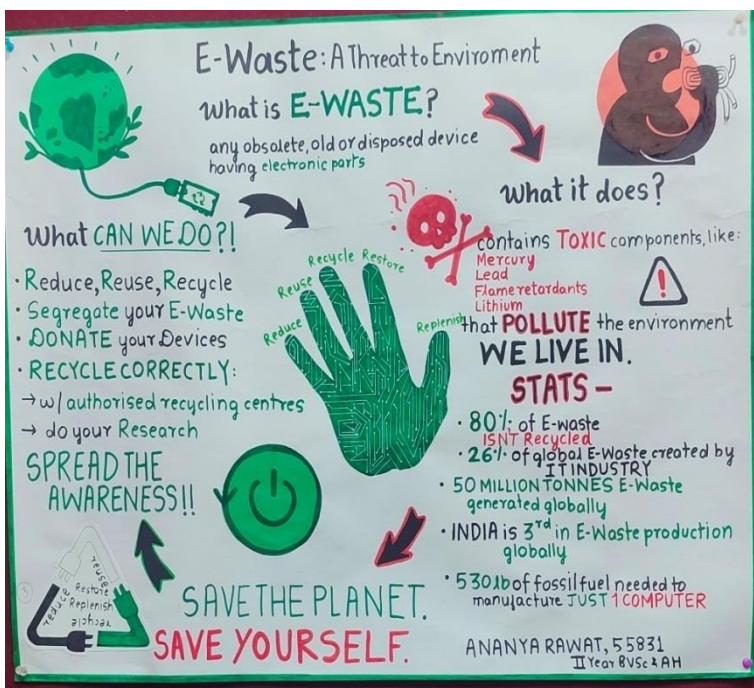 E-Waste: A Threat to Enviroment
What is E-WASTE?
any obsolete, old or disposed device
having electronic parts
What it does?
contains TOXIC components, like:
Mercury
Lead
Flame retardants
Lithium
that POLLUTE the environment
WE LIVE IN.
STATS –
• 80% of E-waste
ISNT Recycled
• 26% of global E-Waste created by
IT INDUSTRY
• 50 MILLION TONNES E-Waste
generated globally
• INDIA is 3rd in E-Waste production
globally
• 530 lb of fossil fuel needed to
manufacture JUST 1 COMPUTER
Reduce
Reuse
Recycle
Restore
Replenish
What CAN WE DO?!
• Reduce, Reuse, Recycle
• Segregate your E-Waste
• DONATE your Devices
• RECYCLE CORRECTLY:
→ w/ authorised recycling centres
→ do your Research
SPREAD THE
AWARENESS!!
reduce
reuse
recycle
Restore
Replenish
SAVE THE PLANET.
SAVE YOURSELF.
ANANYA RAWAT, 55831
II Year BVSc & AH